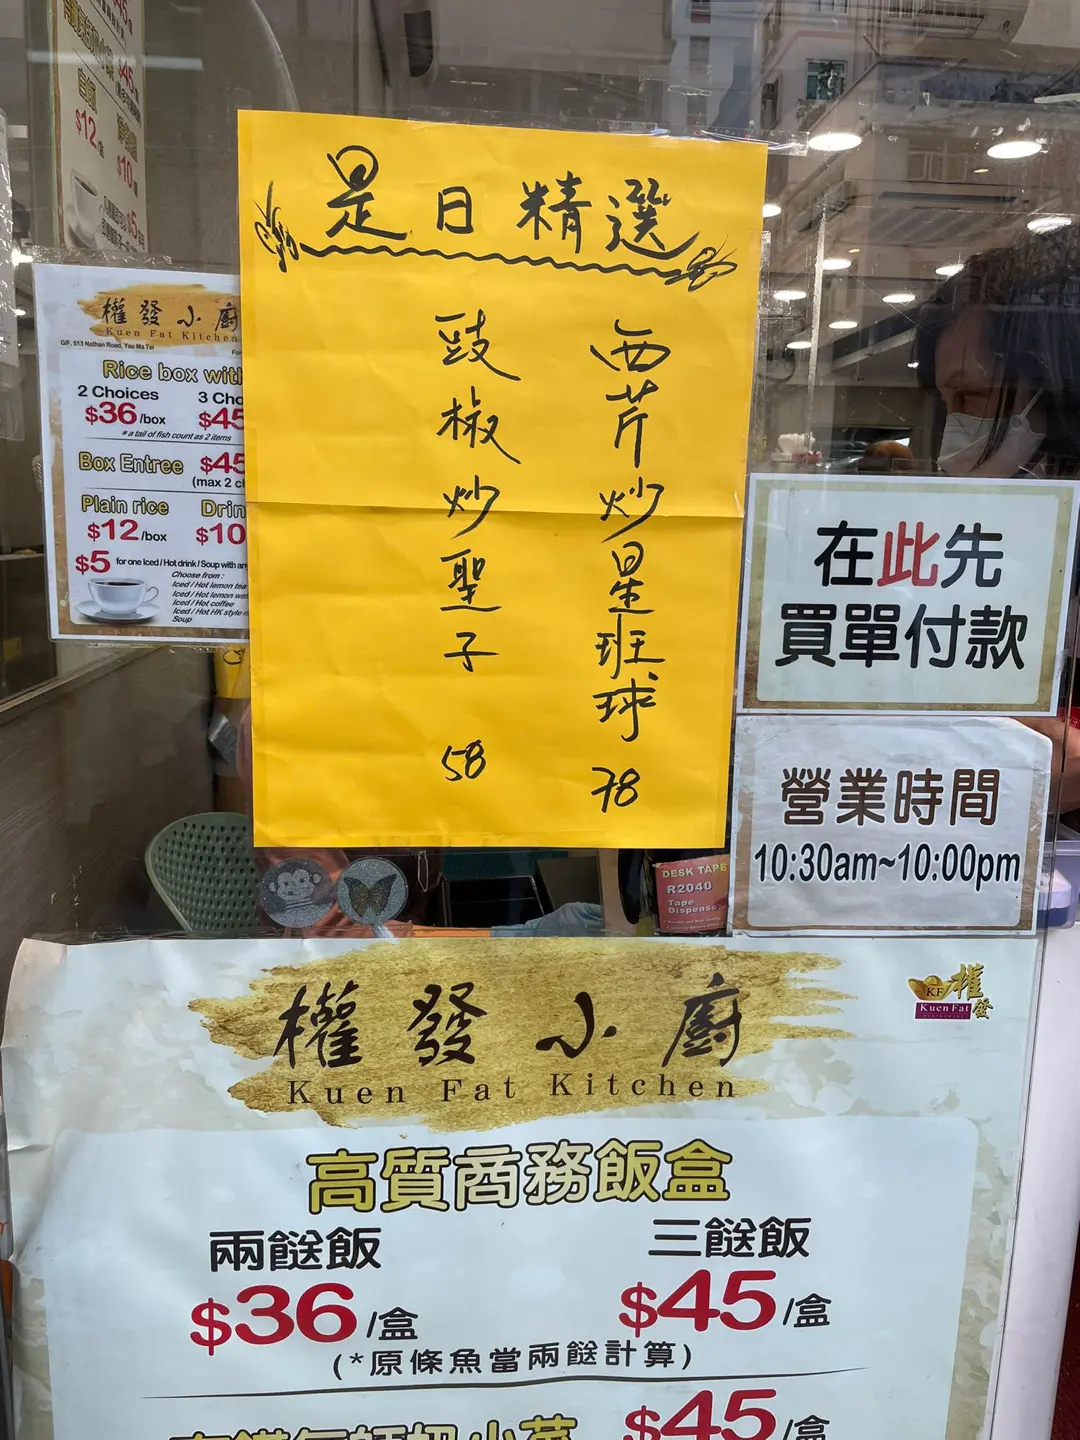 是日精選
西芹炒星班球 78
豉椒炒聖子 58
權發小廚
Kuen Fat Kitchen
G/F, 613 Nathan Road, Yau Ma Tei
Rice box with
2 Choices
$36/box
$45
*a tail of fish count as 2 items
Box Entree
$45
Plain rice
$12/box
$10
$5 for one Iced / Hot drink / Soup with
Choose from:
Iced / Hot lemon tea
Iced / Hot coffee
Iced / Hot HK style
Soup
$12
$10
在此先
買單付款
營業時間
10:30am~10:00pm
DESK TAPE
R2040
Tape
權發小廚
Kuen Fat Kitchen
KF
權發
Kuen Fat
高質商務飯盒
兩餸飯
$36/盒
三餸飯
$45/盒
(*原條魚當兩餸計算)
$45/盒